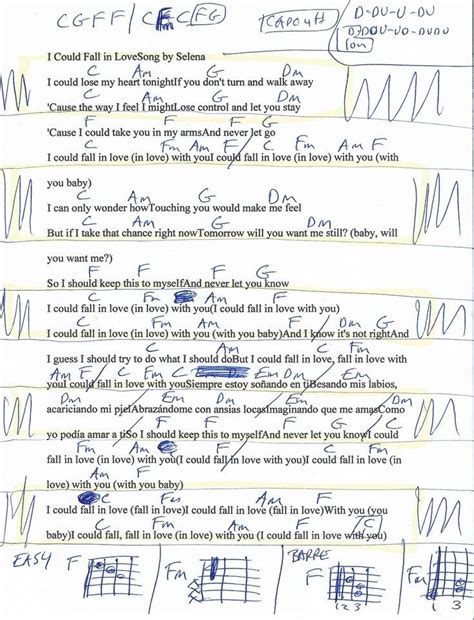 C G F F / C Fm C FG CAPO 4th D-DU-U-DU
I Could Fall in LoveSong by Selena
C Am G Dm
I could lose my heart tonightIf you don't turn and walk away
C Am G Dm
'Cause the way I feel I mightLose control and let you stay
F F F G
'Cause I could take you in my armsAnd never let go
C Fm Am F C Fm Am F
I could fall in love (in love) with youI could fall in love (in love) with you (with
you baby)
C Am G Dm
I can only wonder howTouching you would make me feel
C Am G Dm
But if I take that chance right nowTomorrow will you want me still? (baby, will
you want me?)
F F F G
So I should keep this to myselfAnd never let you know
C Fm Am F
I could fall in love (in love) with you(I could fall in love with you)
C Fm Am F Dm G
I could fall in love (in love) with you (with you baby)And I know it's not rightAnd
C Fm
I guess I should try to do what I should doBut I could fall in love, fall in love with
Am F C Dm Em Dm
youI could fall in love with youSiempre estoy soñando en tiBesando mis labios,
Em Dm Em Dm Em
acariciando mi pielAbrazándome con ansias locasImaginando que me amasComo
F F F G C
yo podía amar a tiSo I should keep this to myselfAnd never let you knowI could
Fm Am F C Fm
fall in love (in love) with you(I could fall in love with you)I could fall in love (in
Am F
love) with you (with you baby)
C Am F
I could fall in love (fall in love)I could fall in love (fall in love)With you (you
C Fm Am F C
baby)I could fall, fall in love (in love) with you (I could fall in love with you)
EASY F Fm BARRE F Fm
1 2 3 1 3